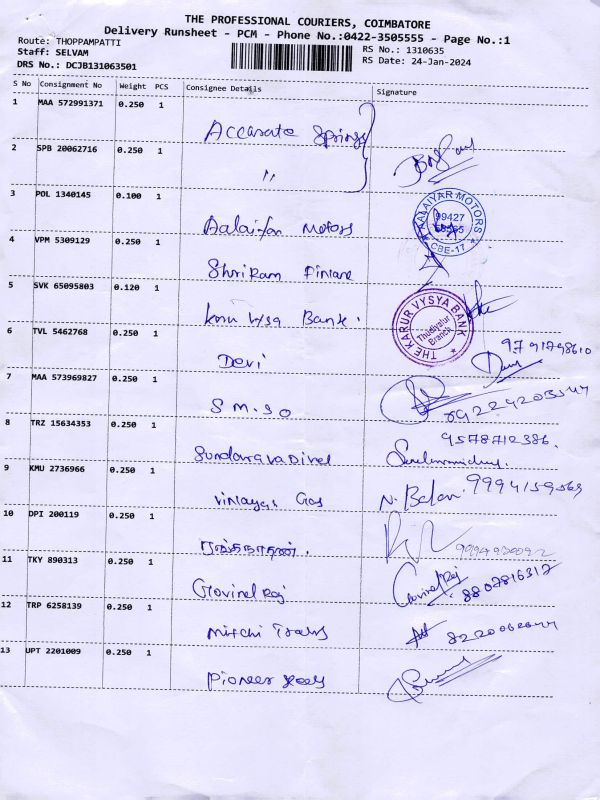 THE PROFESSIONAL COURIERS, COIMBATORE
Delivery Runsheet - PCM - Phone No.:0422-3505555 - Page No.:1
Route: THOPPAMPATTI
RS No.: 1310635
Staff: SELVAM
RS Date: 24-Jan-2024
DRS No.: DCJB131063501
S No Consignment No Weight PCS Consignee Details Signature
1 MAA 572991371 0.250 1
Accurate Springs
2 SPB 20062716 0.250 1
"
3 POL 1340145 0.100 1
Aalaiyar Motors
AALAIYAR MOTORS
99427
CBE-17
4 VPM 5309129 0.250 1
Shriram Finance
5 SVK 65095803 0.120 1
Karur Vysa Bank.
THE KARUR VYSYA BANK
Thudiyalur
Branch
6 TVL 5462768 0.250 1
Devi
9791798610
7 MAA 573969827 0.250 1
S M. SO
8 TRZ 15634353 0.250 1
9578712386.
Sundaravadivel
9 KMU 2736966 0.250 1
Vinayaga Gas N. Balan. 9994159569
10 DPI 200119 0.250 1
11 TKY 890313 0.250 1
Govind Raj Govind Raj 8807816317
12 TRP 6258139 0.250 1
Mirchi
13 UPT 2201009 0.250 1
Pioneer